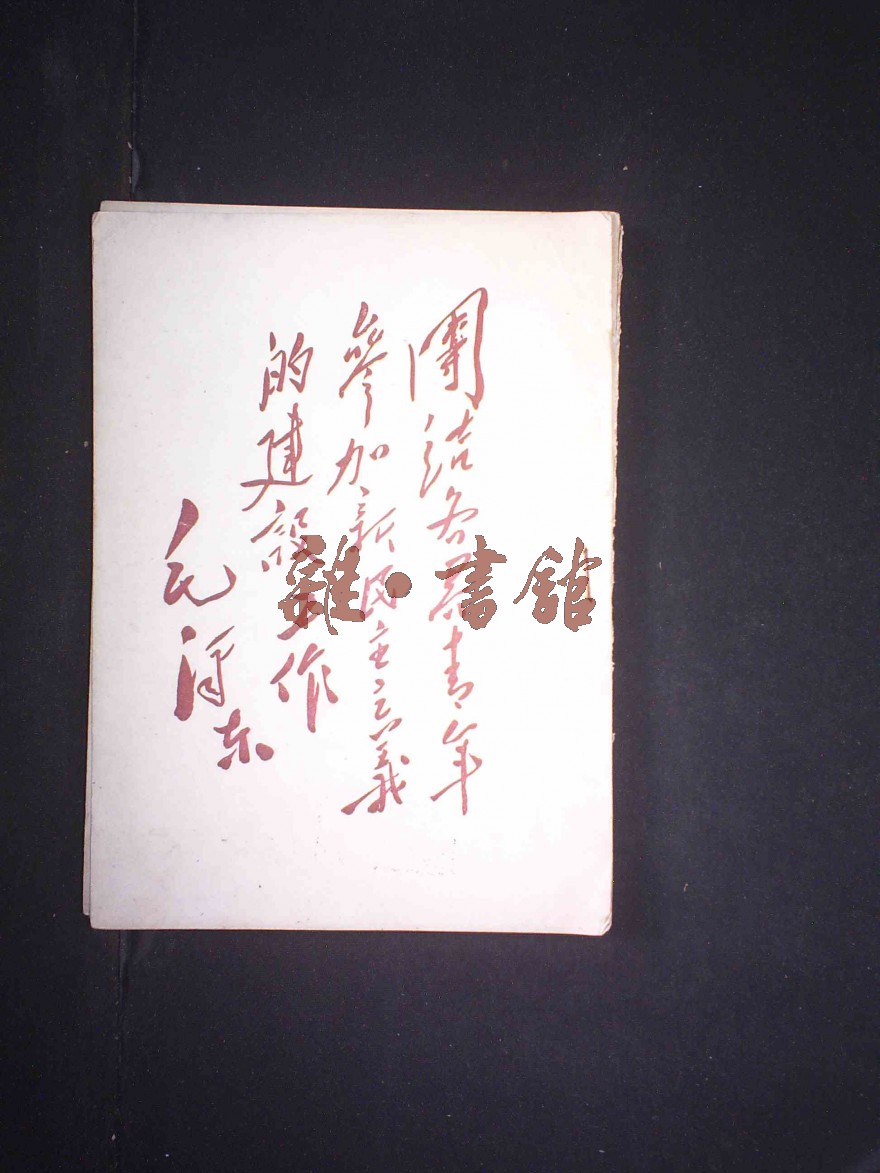 團結各界青年
參加新民主主義
的建設工作
毛澤東
雜·書館